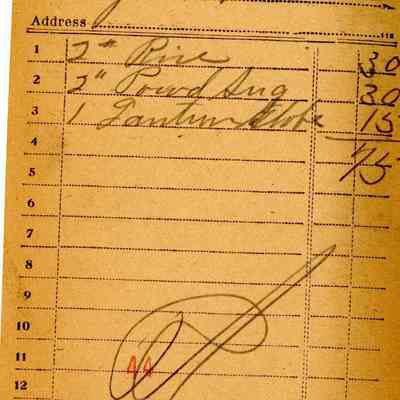 Address 118
1 2" Rice 30
2 2" Powd Sug 30
3 1 Lantern Globe 15
4 75
5
6
7
8
9
10
11 44
12